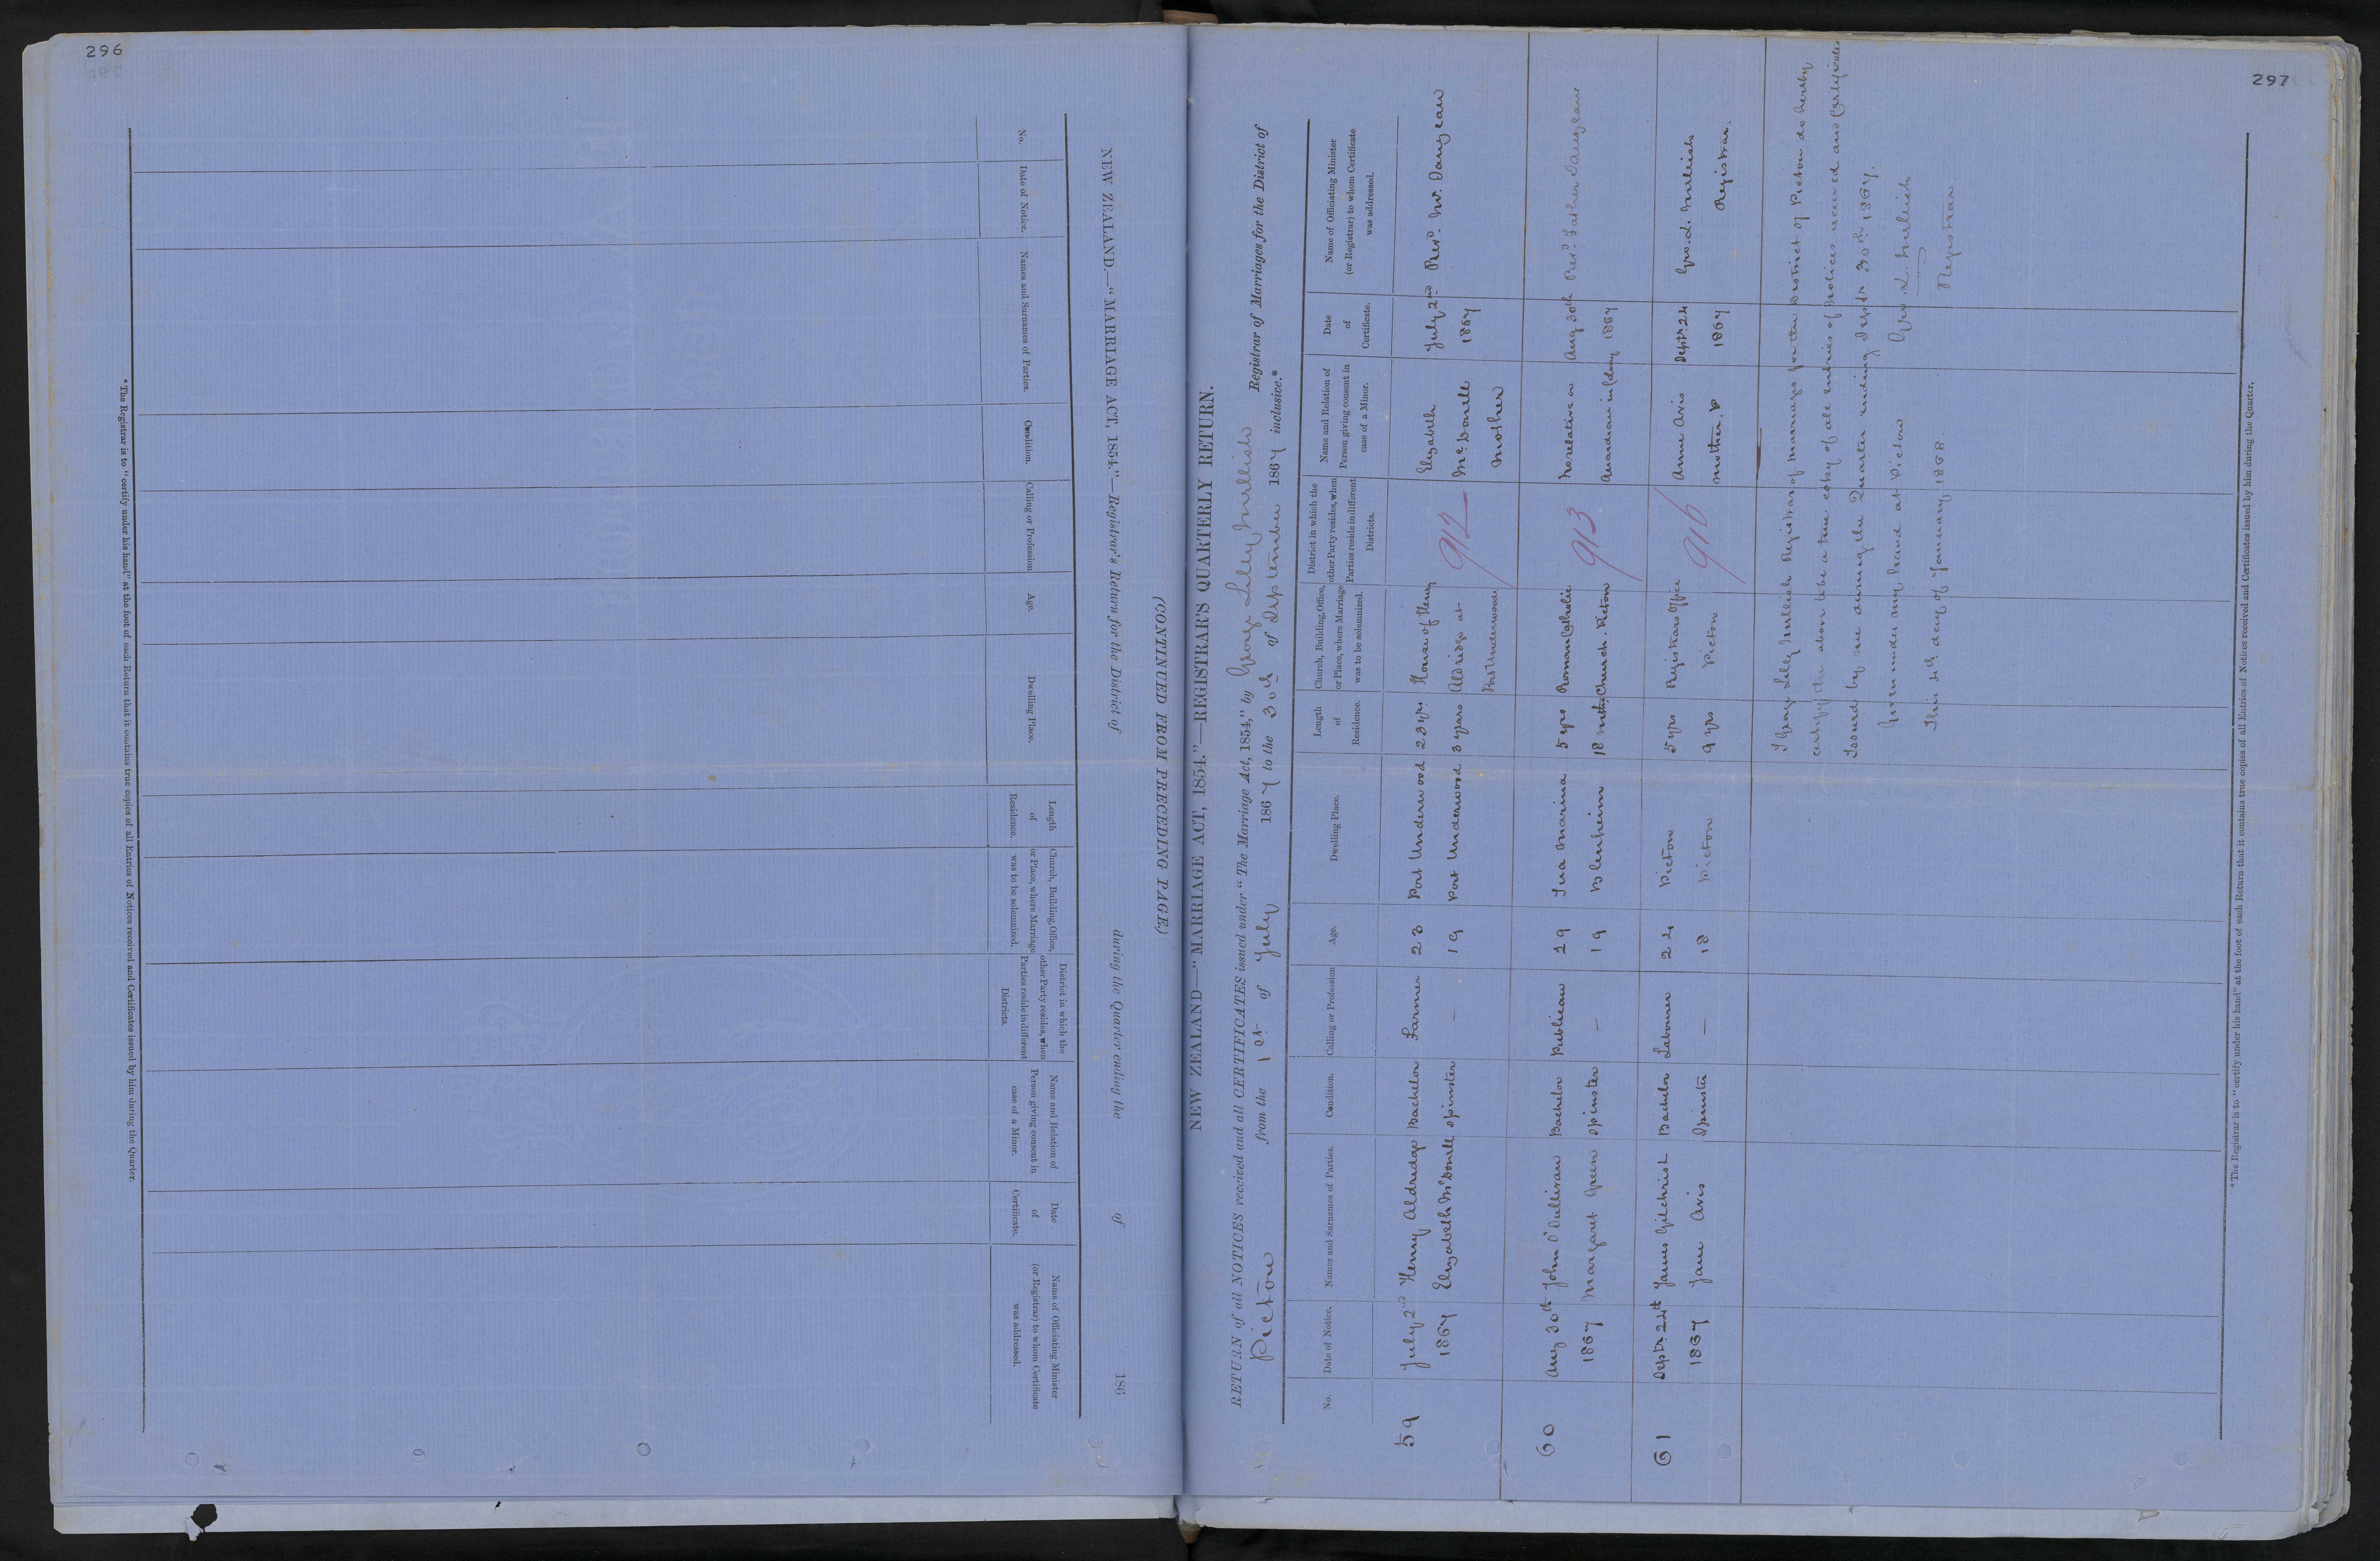 296
NEW ZEALAND.—"MARRIAGE ACT, 1854."—Registrar's Return for the District of during the Quarter ending the of 186
(CONTINUED FROM PRECEDING PAGE.)
No.
Date of Notice.
Names and Surnames of Parties.
Condition.
Calling or Profession
Age.
Dwelling Place.
Length
of
Residence.
Church, Building, Office,
or Place, where Marriage
was to be solemnized.
District in which the
other Party resides, when
Parties reside in different
Districts.
Name and Relation of
Person giving consent in
case of a Minor.
Date
of
Certificate.
Name of Officiating Minister
(or Registrar) to whom Certificate
was addressed.
*The Registrar is to "certify under his hand" at the foot of each Return that it contains true copies of all Entries of Notices received and Certificates issued by him during the Quarter.
297
NEW ZEALAND—"MARRIAGE ACT, 1854."—REGISTRAR'S QUARTERLY RETURN.
RETURN of all NOTICES received and all CERTIFICATES issued under "The Marriage Act, 1854," by George Lilly Mellish Registrar of Marriages for the District of
Picton from the 1st of July 1867 to the 30th of September 1867 inclusive.*
No.
Date of Notice.
Names and Surnames of Parties.
Condition.
Calling or Profession
Age.
Dwelling Place.
Length
of
Residence.
Church, Building, Office,
or Place, where Marriage
was to be solemnized.
District in which the
other Party resides, when
Parties reside in different
Districts.
Name and Relation of
Person giving consent in
case of a Minor.
Date
of
Certificate.
Name of Officiating Minister
(or Registrar) to whom Certificate
was addressed.
59 July 2nd Henry Aldridge Bachelor Farmer 23 Port Underwood 23 yrs. House of Henry Elizabeth July 2nd Revd. Mr. Danjeau
1867 Elizabeth McDonell Spinster — 19 Port Underwood 3 years Aldridge at 912 McDonell 1867
Port Underwood Mother
60 Aug 30th John O'Sullivan Bachelor Publican 29 Tua Marina 5 yrs Roman Catholic No relative or Aug 30th Revd. Father Danjeau
1867 Margaret Green Spinster — 19 Blenheim 18 mths Church. Picton 913 Guardian in Colony 1867
61 Septr. 24th James Gilchrist Bachelor Labourer 24 Picton 5 yrs Registrars Office Anne Avis Septr. 24 Geo. L. Mellish
1867 Jane Avis Spinster — 18 Picton 9 yrs Picton 916 Mother. 1867 Registrar.
I George Lilly Mellish Registrar of Marriages for the District of Picton do hereby
certify the above to be a true copy of all entries of Notices received and Certificates
Issued by me during the Quarter ending Septr. 30th 1867.
Given under my hand at Picton Geo. L. Mellish
This 4th day of January 1868. Registrar
*The Registrar is to "certify under his hand" at the foot of each Return that it contains true copies of all Entries of Notices received and Certificates issued by him during the Quarter.